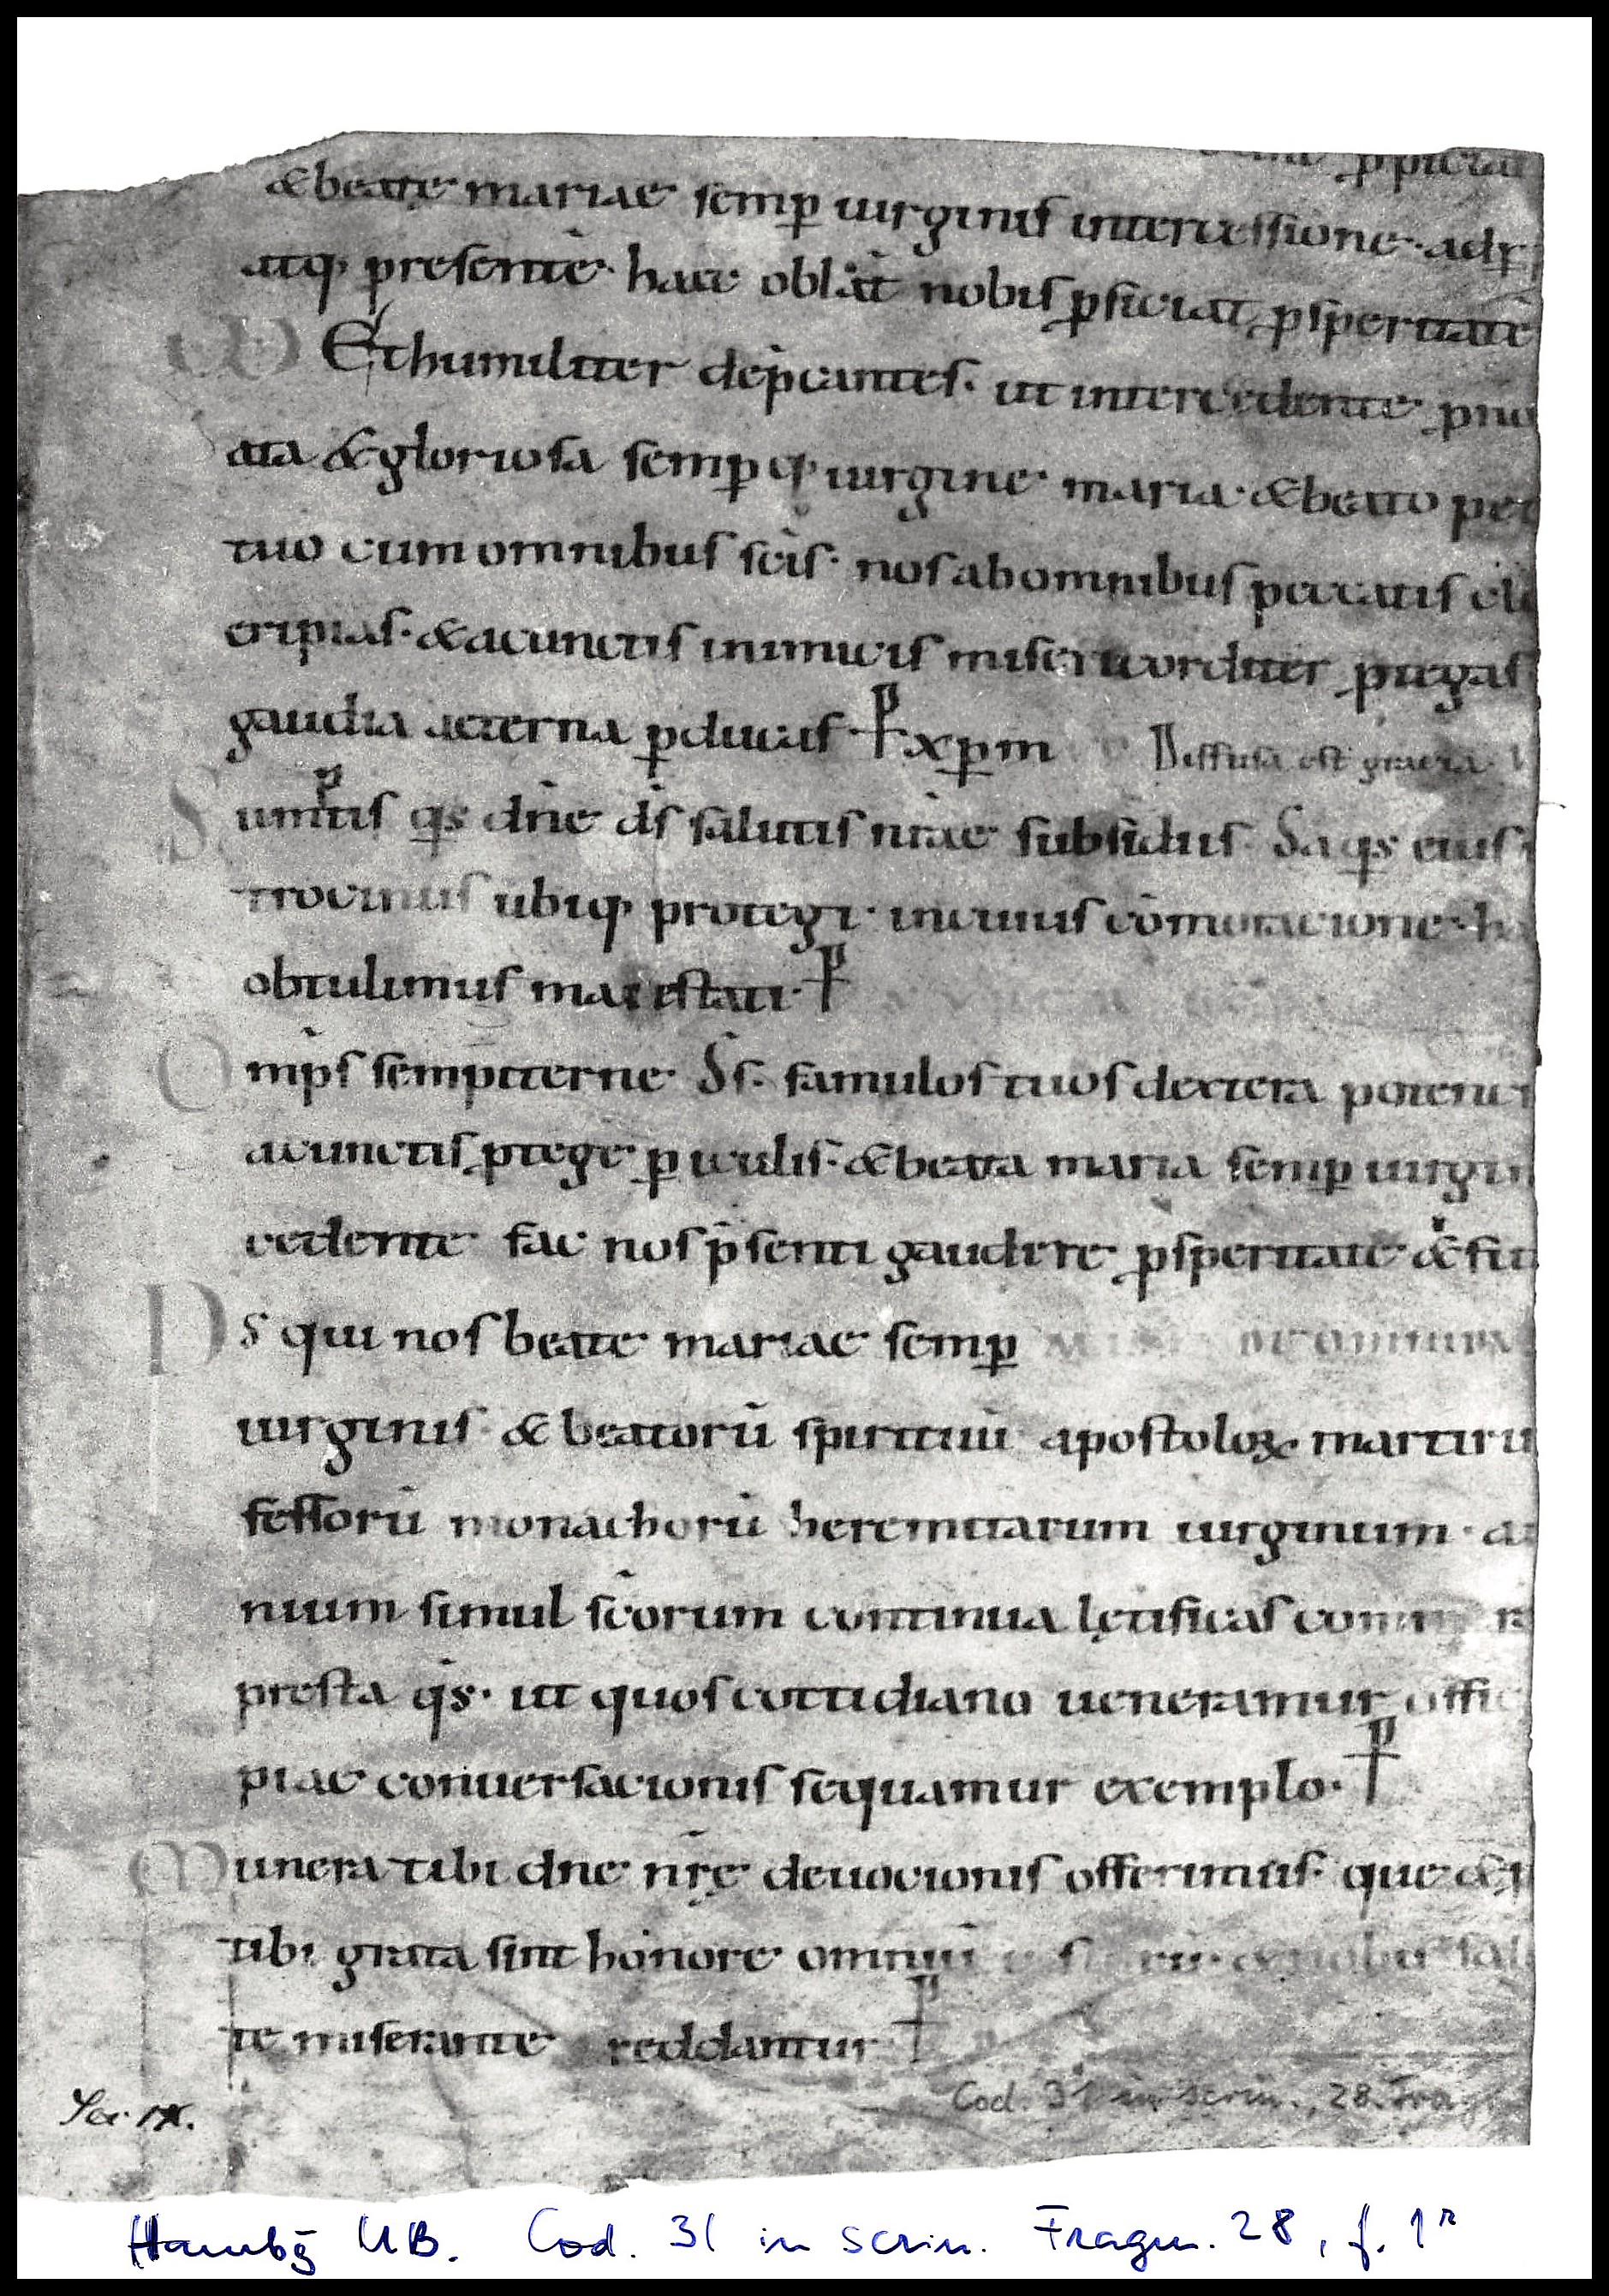 & beatę mariae semp̲ uirginis intercessione · ad
atq; presentē · haec oblat̄ nobis p̲ficiat p̲speritatē
VD Et humiliter dep̄cantes · ut intercedente p̲
ata & gloriosa semp̲q; uirgine maria · & beato
tuo cum omnibus sc̄is · nos ab omnibus peccatis
eripias · & a cunctis inimicis misericorditer p̲tegas
gaudia aeterna p̲ducas P xp̲m Diffusa est gracia
Sumptis qs dn̄e ds̄ salutis nr̄ae subsidiis · Da qs eius
trociniis ubiq; protegi · in cuius cōmoracione ·
obtulimus maiestati · P
Omp̄s sempiterne Ds̄ · famulos tuos dextera
a cunctis p̲tege p̲iculis · & beata maria semp̲
cedente fac nos p̄senti gaudere p̲speritate &
Ds qui nos beate mariae semp̲
uirginis & beatorū spirituū apostoloꝝ
fessorū monachorū heremitarum uirginum ·
nium simul sc̄orum continua lętificas
presta qs̄ · ut quos cottidiano ueneramur
piae conuersacionis sequamur exemplo · P
Munera tibi dn̄e nr̄ę deuocionis offerimus · que &
tibi grata sint honore omniū & nobis
te miserante reddantur P
Cod. 31 in scrin., 28. Frag
Sec. IX.
Hambg UB. Cod. 31 in scrin. Fragm. 28, f. 1r